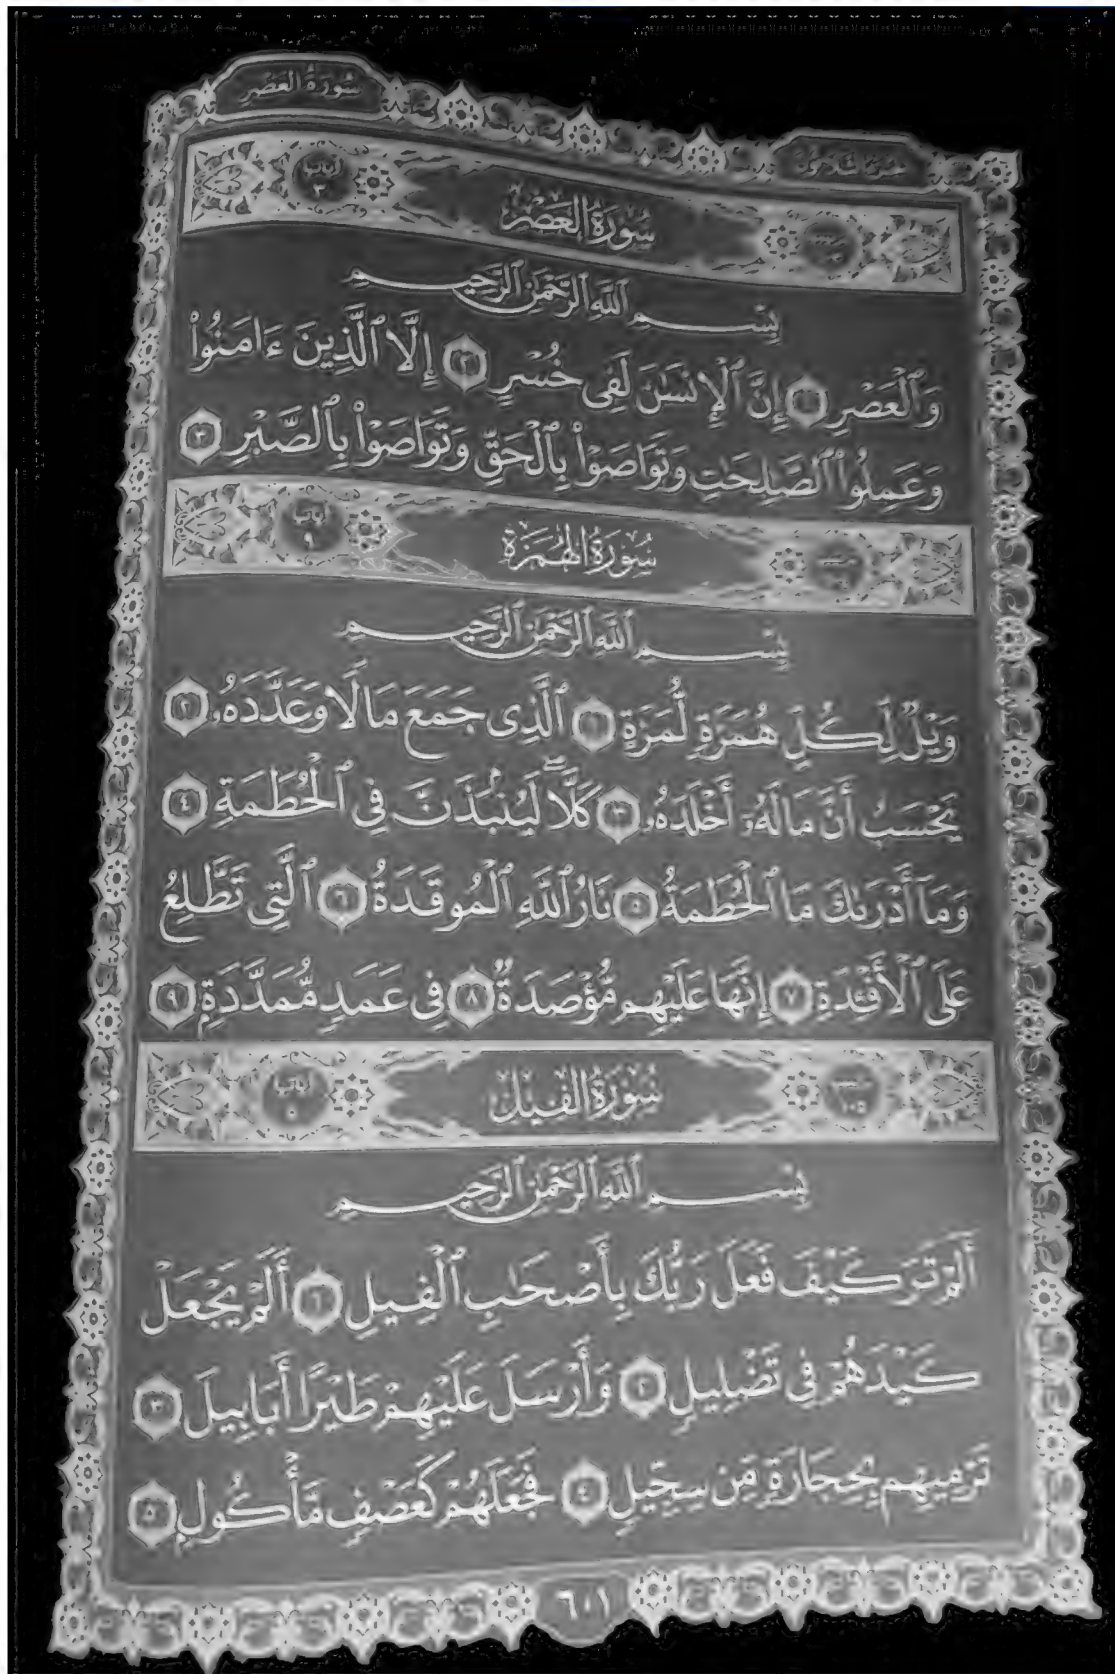 سُورَةُ العَصْرِ
آياتها ٣ سُورَةُ العَصْرِ
بِسْمِ ٱللَّهِ ٱلرَّحْمَٰنِ ٱلرَّحِيمِ
وَٱلْعَصْرِ ١ إِنَّ ٱلْإِنسَٰنَ لَفِى خُسْرٍ ٢ إِلَّا ٱلَّذِينَ ءَامَنُوا۟
وَعَمِلُوا۟ ٱلصَّٰلِحَٰتِ وَتَوَاصَوْا۟ بِٱلْحَقِّ وَتَوَاصَوْا۟ بِٱلصَّبْرِ ٣
سُورَةُ الهُمَزَةِ آياتها ٩
بِسْمِ ٱللَّهِ ٱلرَّحْمَٰنِ ٱلرَّحِيمِ
وَيْلٌ لِّكُلِّ هُمَزَةٍ لُّمَزَةٍ ١ ٱلَّذِى جَمَعَ مَالًا وَعَدَّدَهُۥ ٢
يَحْسَبُ أَنَّ مَالَهُۥٓ أَخْلَدَهُۥ ٣ كَلَّا ۖ لَيُنۢبَذَنَّ فِى ٱلْحُطَمَةِ ٤
وَمَآ أَدْرَىٰكَ مَا ٱلْحُطَمَةُ ٥ نَارُ ٱللَّهِ ٱلْمُوقَدَةُ ٦ ٱلَّتِى تَطَّلِعُ
عَلَى ٱلْأَفْـِٔدَةِ ٧ إِنَّهَا عَلَيْهِم مُّؤْصَدَةٌ ٨ فِى عَمَدٍ مُّمَدَّدَةٍۭ ٩
١٠٥ سُورَةُ الفِيلِ آياتها ٥
بِسْمِ ٱللَّهِ ٱلرَّحْمَٰنِ ٱلرَّحِيمِ
أَلَمْ تَرَ كَيْفَ فَعَلَ رَبُّكَ بِأَصْحَٰبِ ٱلْفِيلِ ١ أَلَمْ يَجْعَلْ
كَيْدَهُمْ فِى تَضْلِيلٍ ٢ وَأَرْسَلَ عَلَيْهِمْ طَيْرًا أَبَابِيلَ ٣
تَرْمِيهِم بِحِجَارَةٍ مِّن سِجِّيلٍ ٤ فَجَعَلَهُمْ كَعَصْفٍ مَّأْكُولٍۭ ٥
٦٠١